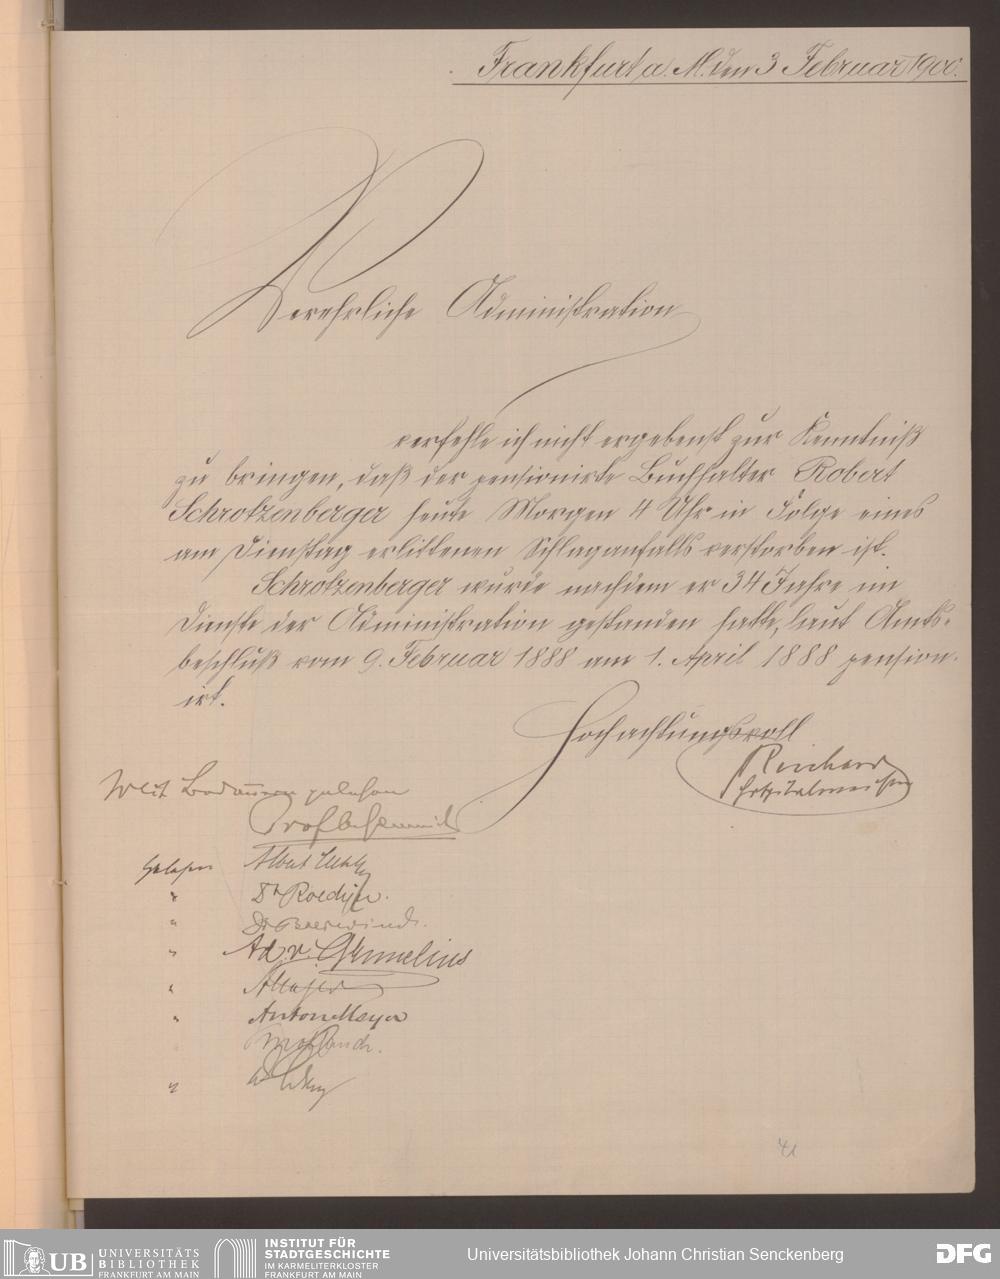 Frankfurt a. M. den 3 Februar 1900.
Verehrliche Administration
verfehle ich nicht ergebenst zur Kenntniß
zu bringen, daß der pensionirte Buchhalter Robert
Schrotzenberger heute Morgen 4 Uhr in Folge eines
am Dienstag erlittenen Schlaganfalls verstorben ist.
Schrotzenberger wurde nachdem er 34 Jahre im
Dienste der Administration gestanden hatte, laut Amts-
beschluß vom 9. Februar 1888 am 1. April 1888 pension-
irt.
Hochachtungsvoll
Reinhard
Hospitalmeister
Mit Bedauern gelesen
Gelesen Albert
" Dr Roediger.
"
" Ad. v. Grunelius
"
" Anton Meyer
"
41
UB UNIVERSITÄTS
BIBLIOTHEK
FRANKFURT AM MAIN
INSTITUT FÜR
STADTGESCHICHTE
IM KARMELITERKLOSTER
FRANKFURT AM MAIN
Universitätsbibliothek Johann Christian Senckenberg
DFG